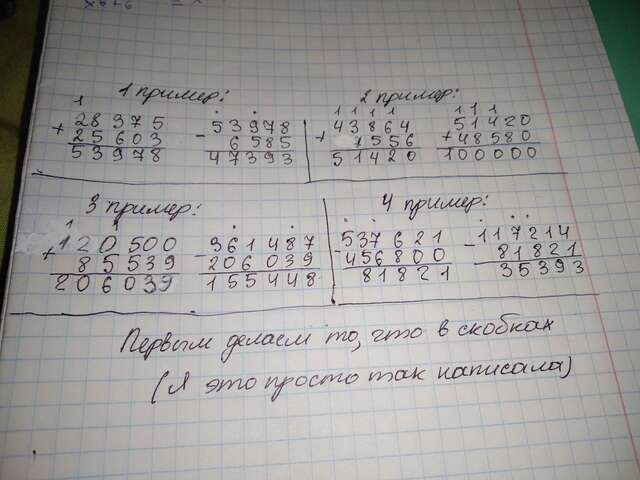 1 пример:
1
+ 28375
25603
53978
- 53978
6585
47393
2 пример:
1 1 1 1
+ 43864
7556
51420
1 1 1
51420
+ 48580
100000
3 пример:
1 1
+ 120500
85539
206039
- 361487
206039
155448
4 пример:
- 537621
456800
81821
- 117214
81821
35393
Первым делаем то, что в скобках
(Я это просто так написала)